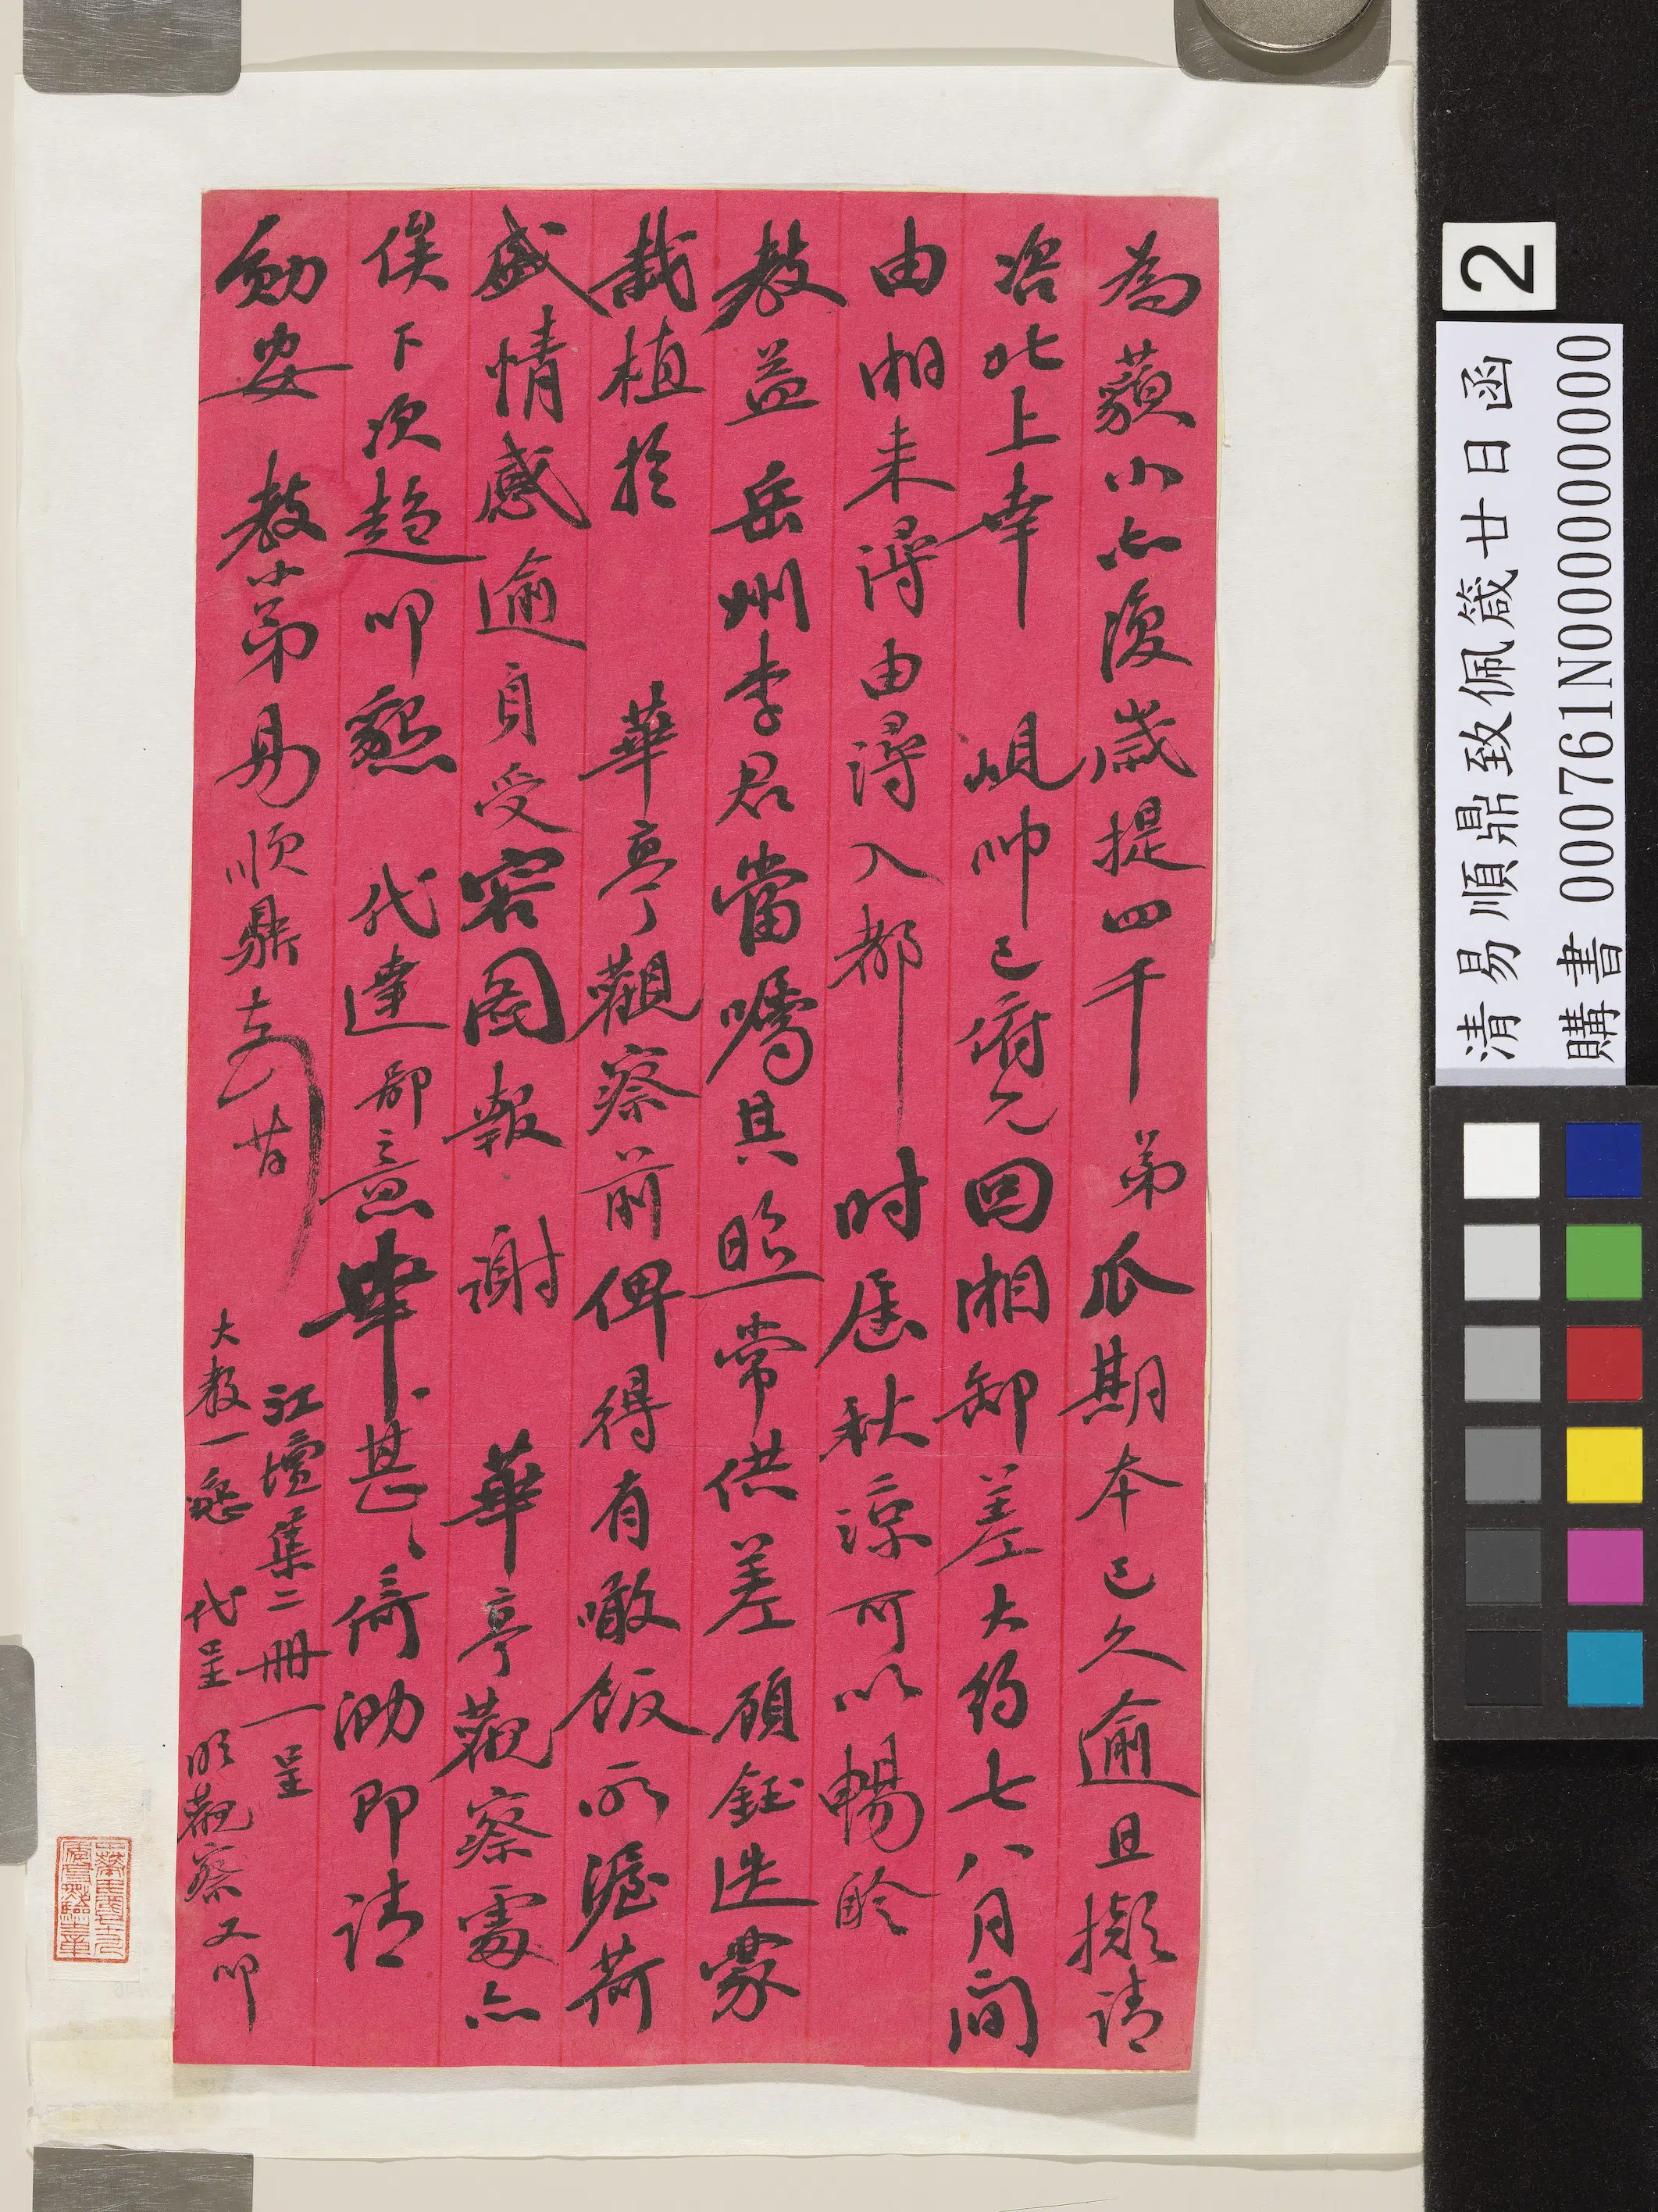 為藐小亦復歲提四千弟瓜期本已久逾且擬請
咨北上幸 峴帥已府允回湘卸差大約七八月間
由湘來潯由潯入都時屆秋涼可以暢聆
教益岳州李君當囑其照常供差顧鈺迭蒙
栽植於 華亭觀察前俾得有噉飯承渥荷
盛情感逾身受容圖報謝 華亭觀察處亦
俟下次趨叩懇 代達鄙意幸甚幸甚倚泐即請
勛安 教小弟易順鼎
江壇集二冊一呈
大教一懇 代呈 觀察又叩
2
清易順鼎致佩箴廿日函
購書 000761N000000000